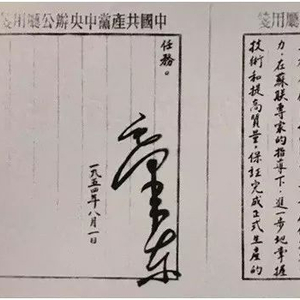 廳用箋
力，在蘇聯專家的指導下，進一步地掌握
技術和提高質量，保証完成正式生產的
中國共產黨中央辦公廳用箋
任務。
毛澤東
一九五四年八月一日